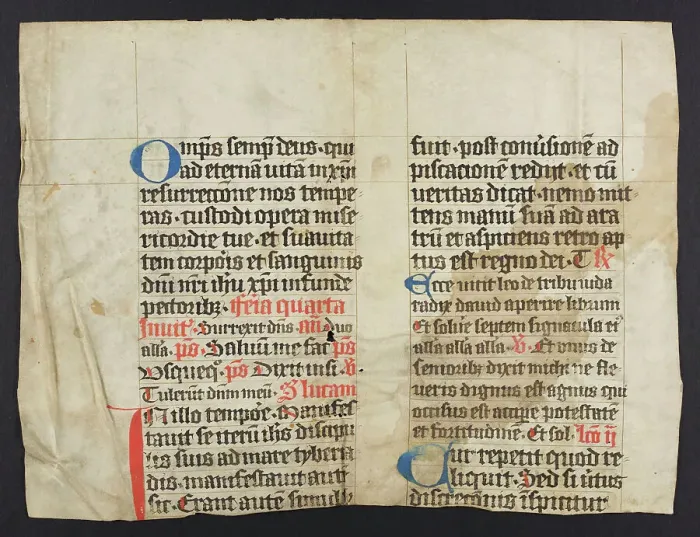 Omp̄s semp̄ deus · qui
ad eternā uitā in xp̄i
resurrecc̄one nos tempe
ras · custodi opera mise
ricordie tue · et suauita
tem corpois et sanguinis
dn̄i nr̄i ih̄u xp̄i infunde
pectoribȝ · Feria quarta
Inuit̄ · Surrexit dn̄s · an̄ · duo
alla · p̄s · Saluū me fac p̄s
Vsqueqȝ · p̄s · Dixit insi · V̄ ·
Tulerūt dnm̄ meū · S lucam
In illo temp̄oe · Manifes
tauit se iterū ih̄s discipu
lis suis ad mare tyberia
dis · manifestauit autē
sic · Erant autē simul
fuit · post conu̓sionē ad
piscacionē redijt · et cū
ueritas dicat · nemo mit
tens manū suā ad ara
trū et aspiciens retro ap
tus est regno dei · T R̄
Ecce uicit leo de tribu iuda
radix dauid aperire librum
Et soluere septem signacula ei᷒
alla alla alla · V̄ · Et vnus de
senioribȝ dixit michi ne fle
ueris dignus est agnus qui
occisus est accipe potestatē
et fortitudinē · Et sol · Lc̄o ij
Cur repetit quod re
liquit · Sed si uirtus
discrec̄onis īspicitur